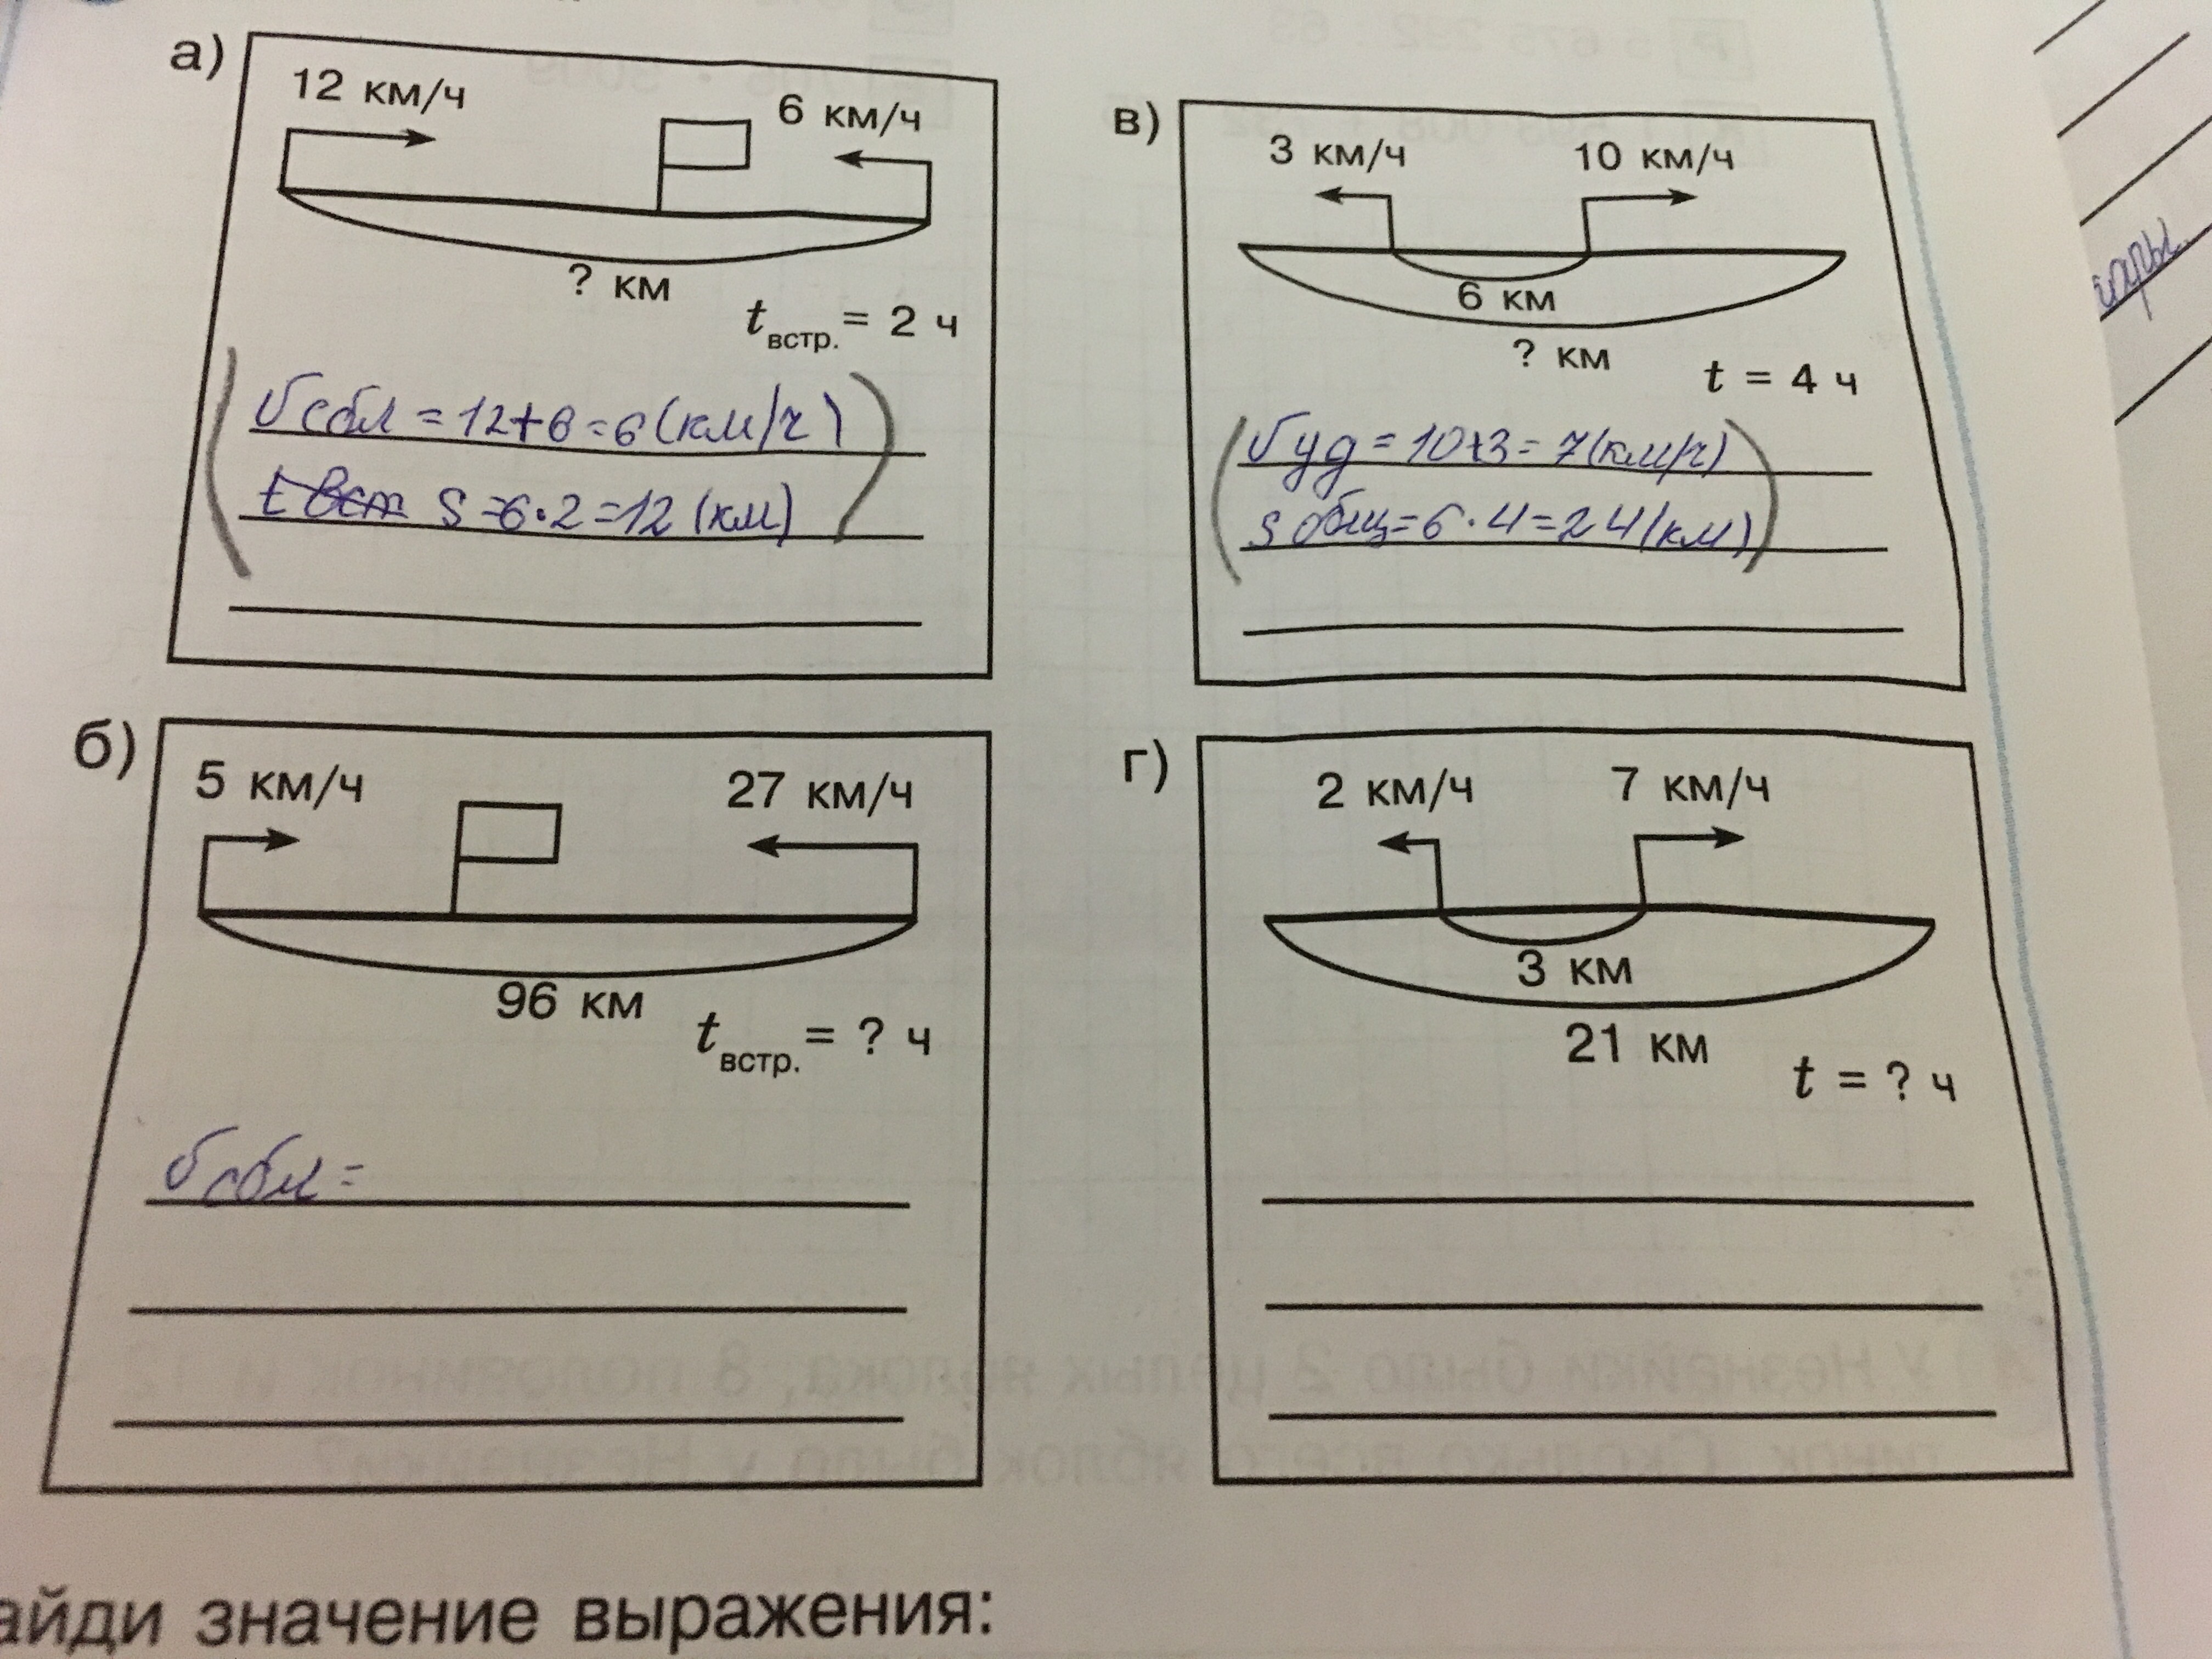 а)
12 км/ч
6 км/ч
? км
tвстр. = 2 ч
Vсбл = 12+6 = 6 (км/ч)
t вст S = 6·2 = 12 (км)
в)
3 км/ч
10 км/ч
6 км
? км
t = 4 ч
Vуд = 10+3 = 7 (км/ч)
S общ = 6·4 = 24 (км)
б)
5 км/ч
27 км/ч
96 км
tвстр. = ? ч
Vсбл =
г)
2 км/ч
7 км/ч
3 км
21 км
t = ? ч
айди значение выражения: